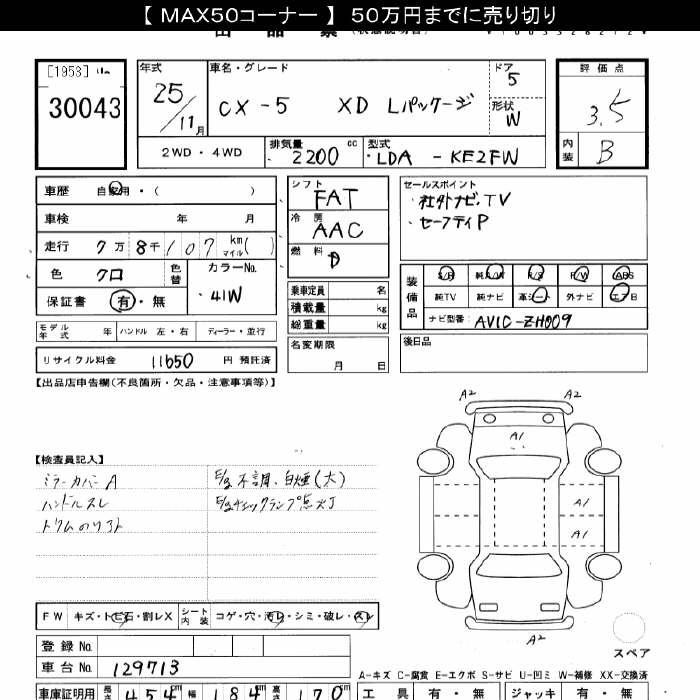 【 MAX50コーナー 】 50万円までに売り切り
[1953]
30043
年式
25/11月
車名・グレード
CX-5 XD Lパッケージ
ドア
5
形状
W
評価点
3.5
内装
B
2WD・4WD
排気量
2200 cc
型式
LDA - KE2FW
車歴 自家用・( )
車検 年 月
走行 7万8千107 km マイル( )
色 クロ
色替
カラーNo.
41W
保証書 有・無
シフト
FAT
冷房
AAC
燃料
D
乗車定員 名
積載量 kg
総重量 kg
セールスポイント
・社外ナビ、TV
・セーフティP
装備品
S/R 純A/W P/S P/W ABS
純TV 純ナビ 革シート 外ナビ エアB
ナビ型番: AVIC-ZH009
モデル年式 年 ハンドル 左・右 ディーラー・並行
リサイクル料金 11650 円 預託済
名変期限
月 日
後日品
【出品店申告欄(不良箇所・欠品・注意事項等)】
【検査員記入】
ミラーカバーA
ハンドルスレ
トリムのソリト
E/g不調、白煙(大)
E/gチェックランプ点灯
A2
A2
A1
A1
A1
A2
スペア
FW キズ・トビ石・割レX
シート内装 コゲ・穴・汚レ・シミ・破レ・スレ
登録No.
車台No. 129713
A-キズ C-腐食 E-エクボ S-サビ U-凹ミ W-補修 XX-交換済
車庫証明用 長さ 454cm 幅 184cm 高さ 170cm
工具 有・無 ジャッキ 有・無